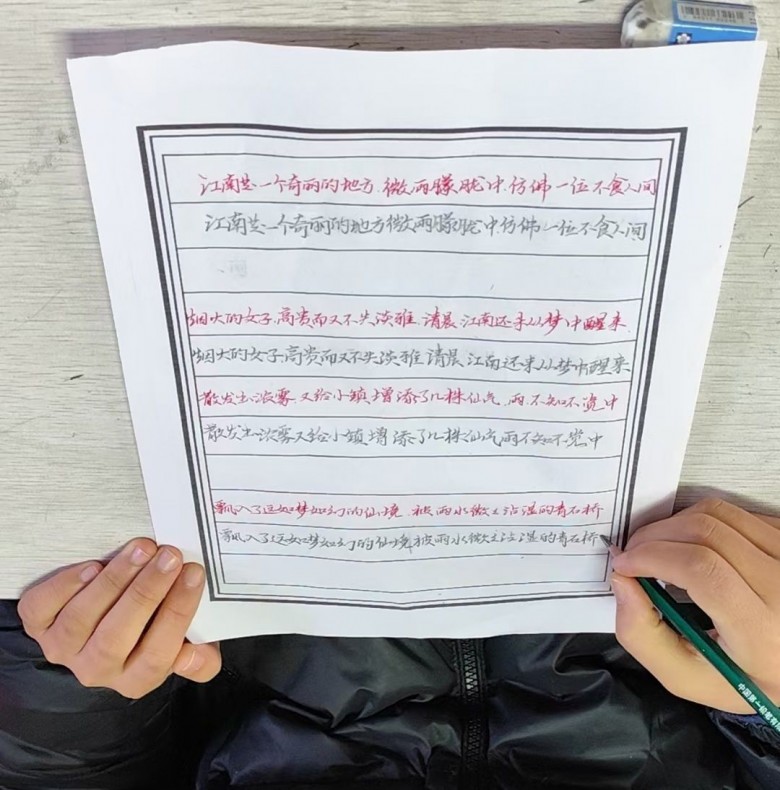 江南是一个奇丽的地方.微雨朦胧中.仿佛一位不食人间
江南是一个奇丽的地方微雨朦胧中仿佛一位不食人间
烟火的女子.高贵而又不失淡雅.清晨.江南还未从梦中醒来.
烟火的女子高贵而又不失淡雅清晨江南还未从梦中醒来
散发出浓雾.又给小镇增添了几株仙气.雨不知不觉中
散发出浓雾又给小镇增添了几株仙气雨不知不觉中
飘入了这如梦如幻的仙境.被雨水微微沾湿的青石桥
飘入了这如梦如幻的仙境被雨水微微沾湿的青石桥
中国第一铅笔有限